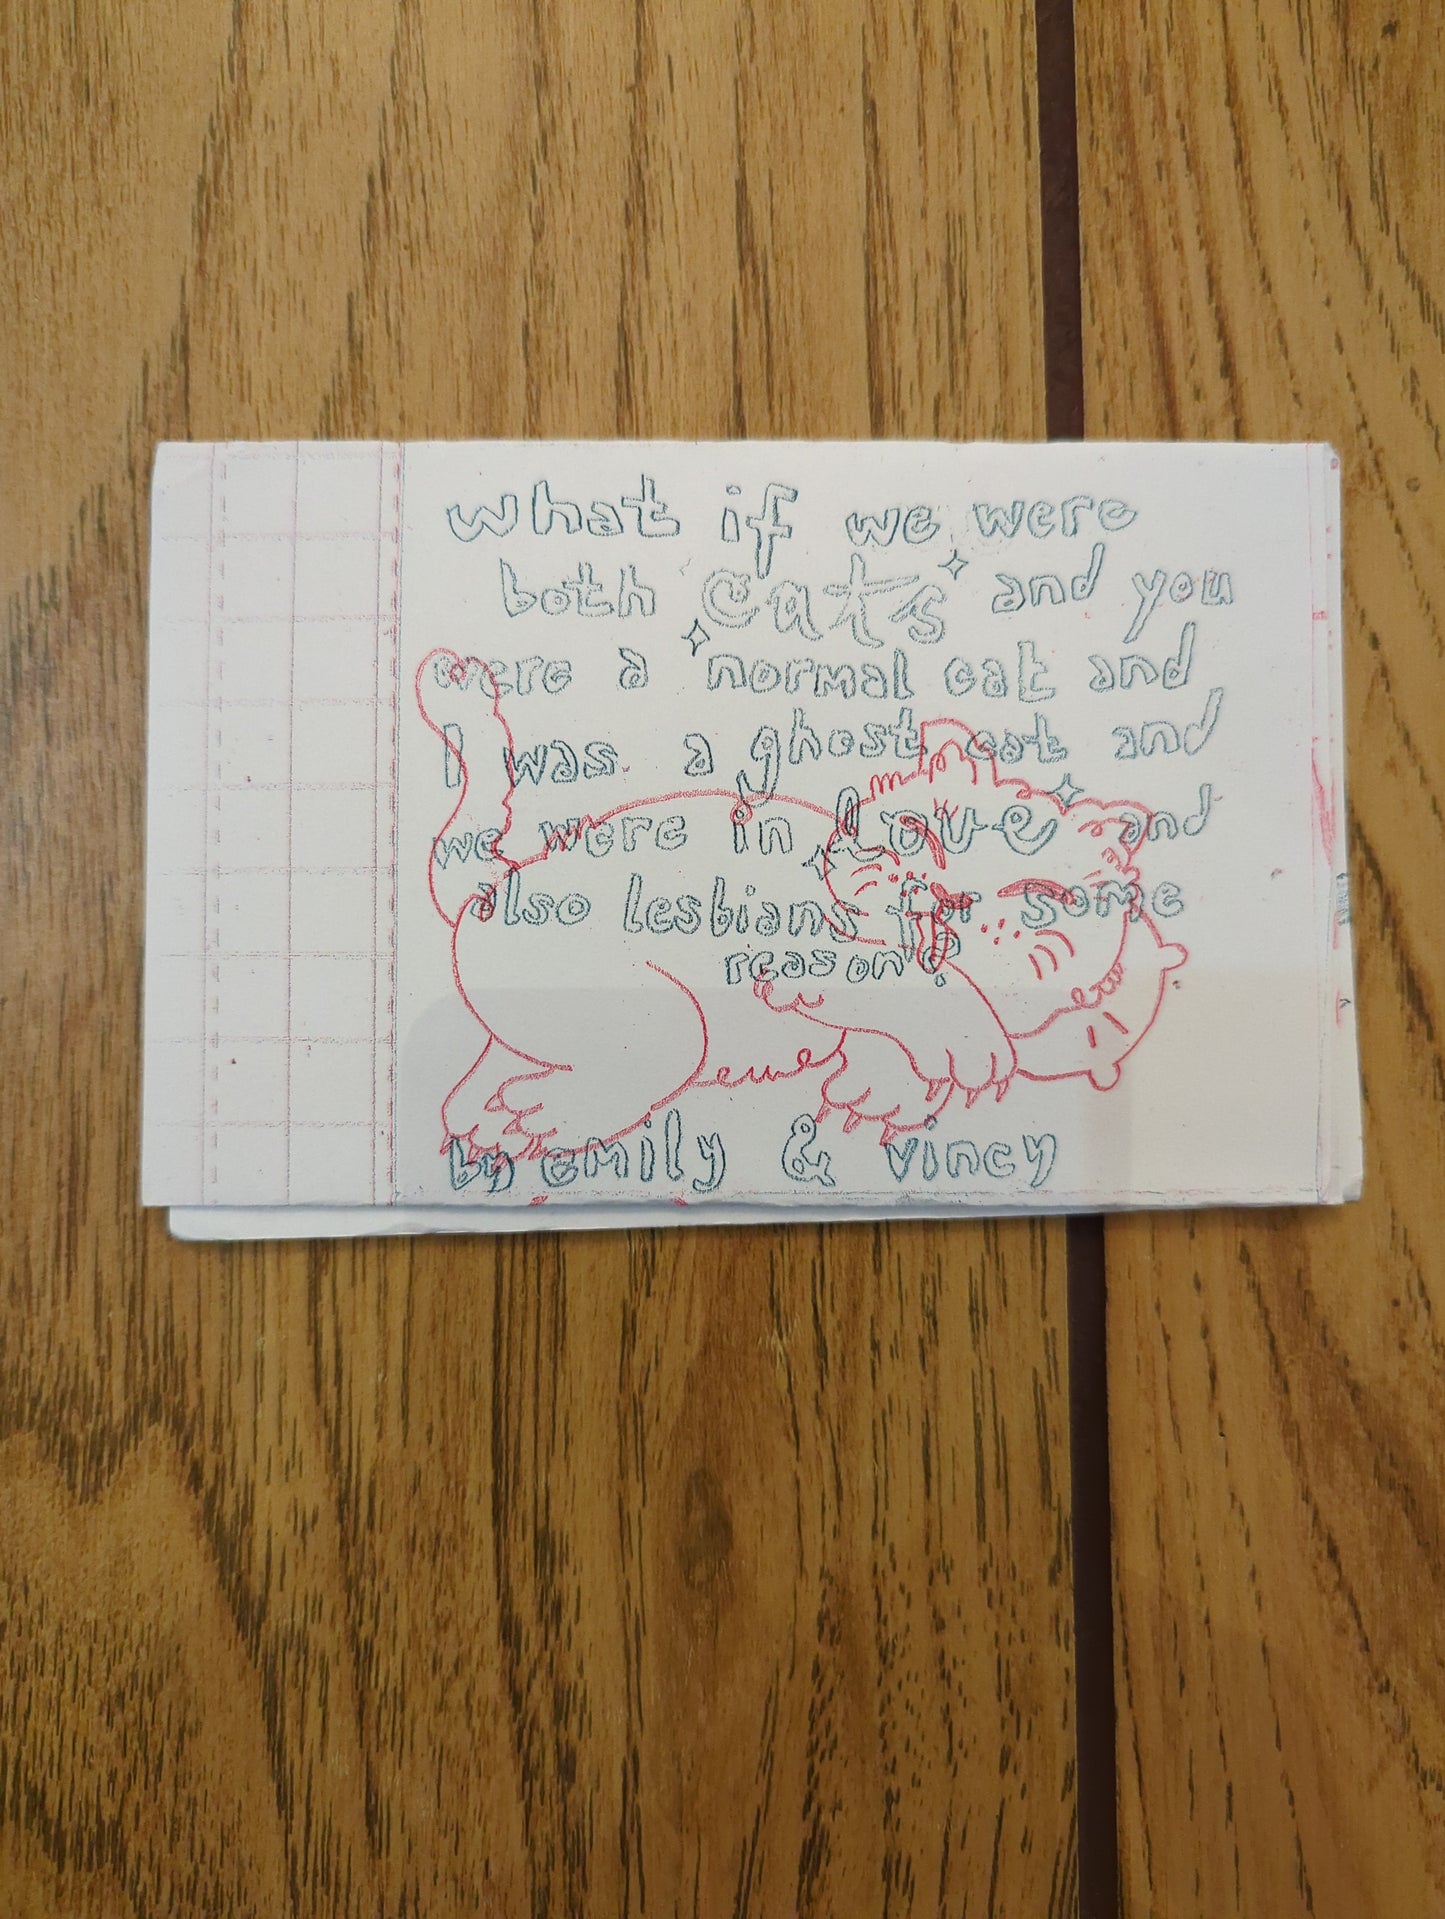 what if we were
both cats and you
were a normal cat and
I was a ghost cat and
we were in love and
also lesbians for some
reason?
by emily & vincy